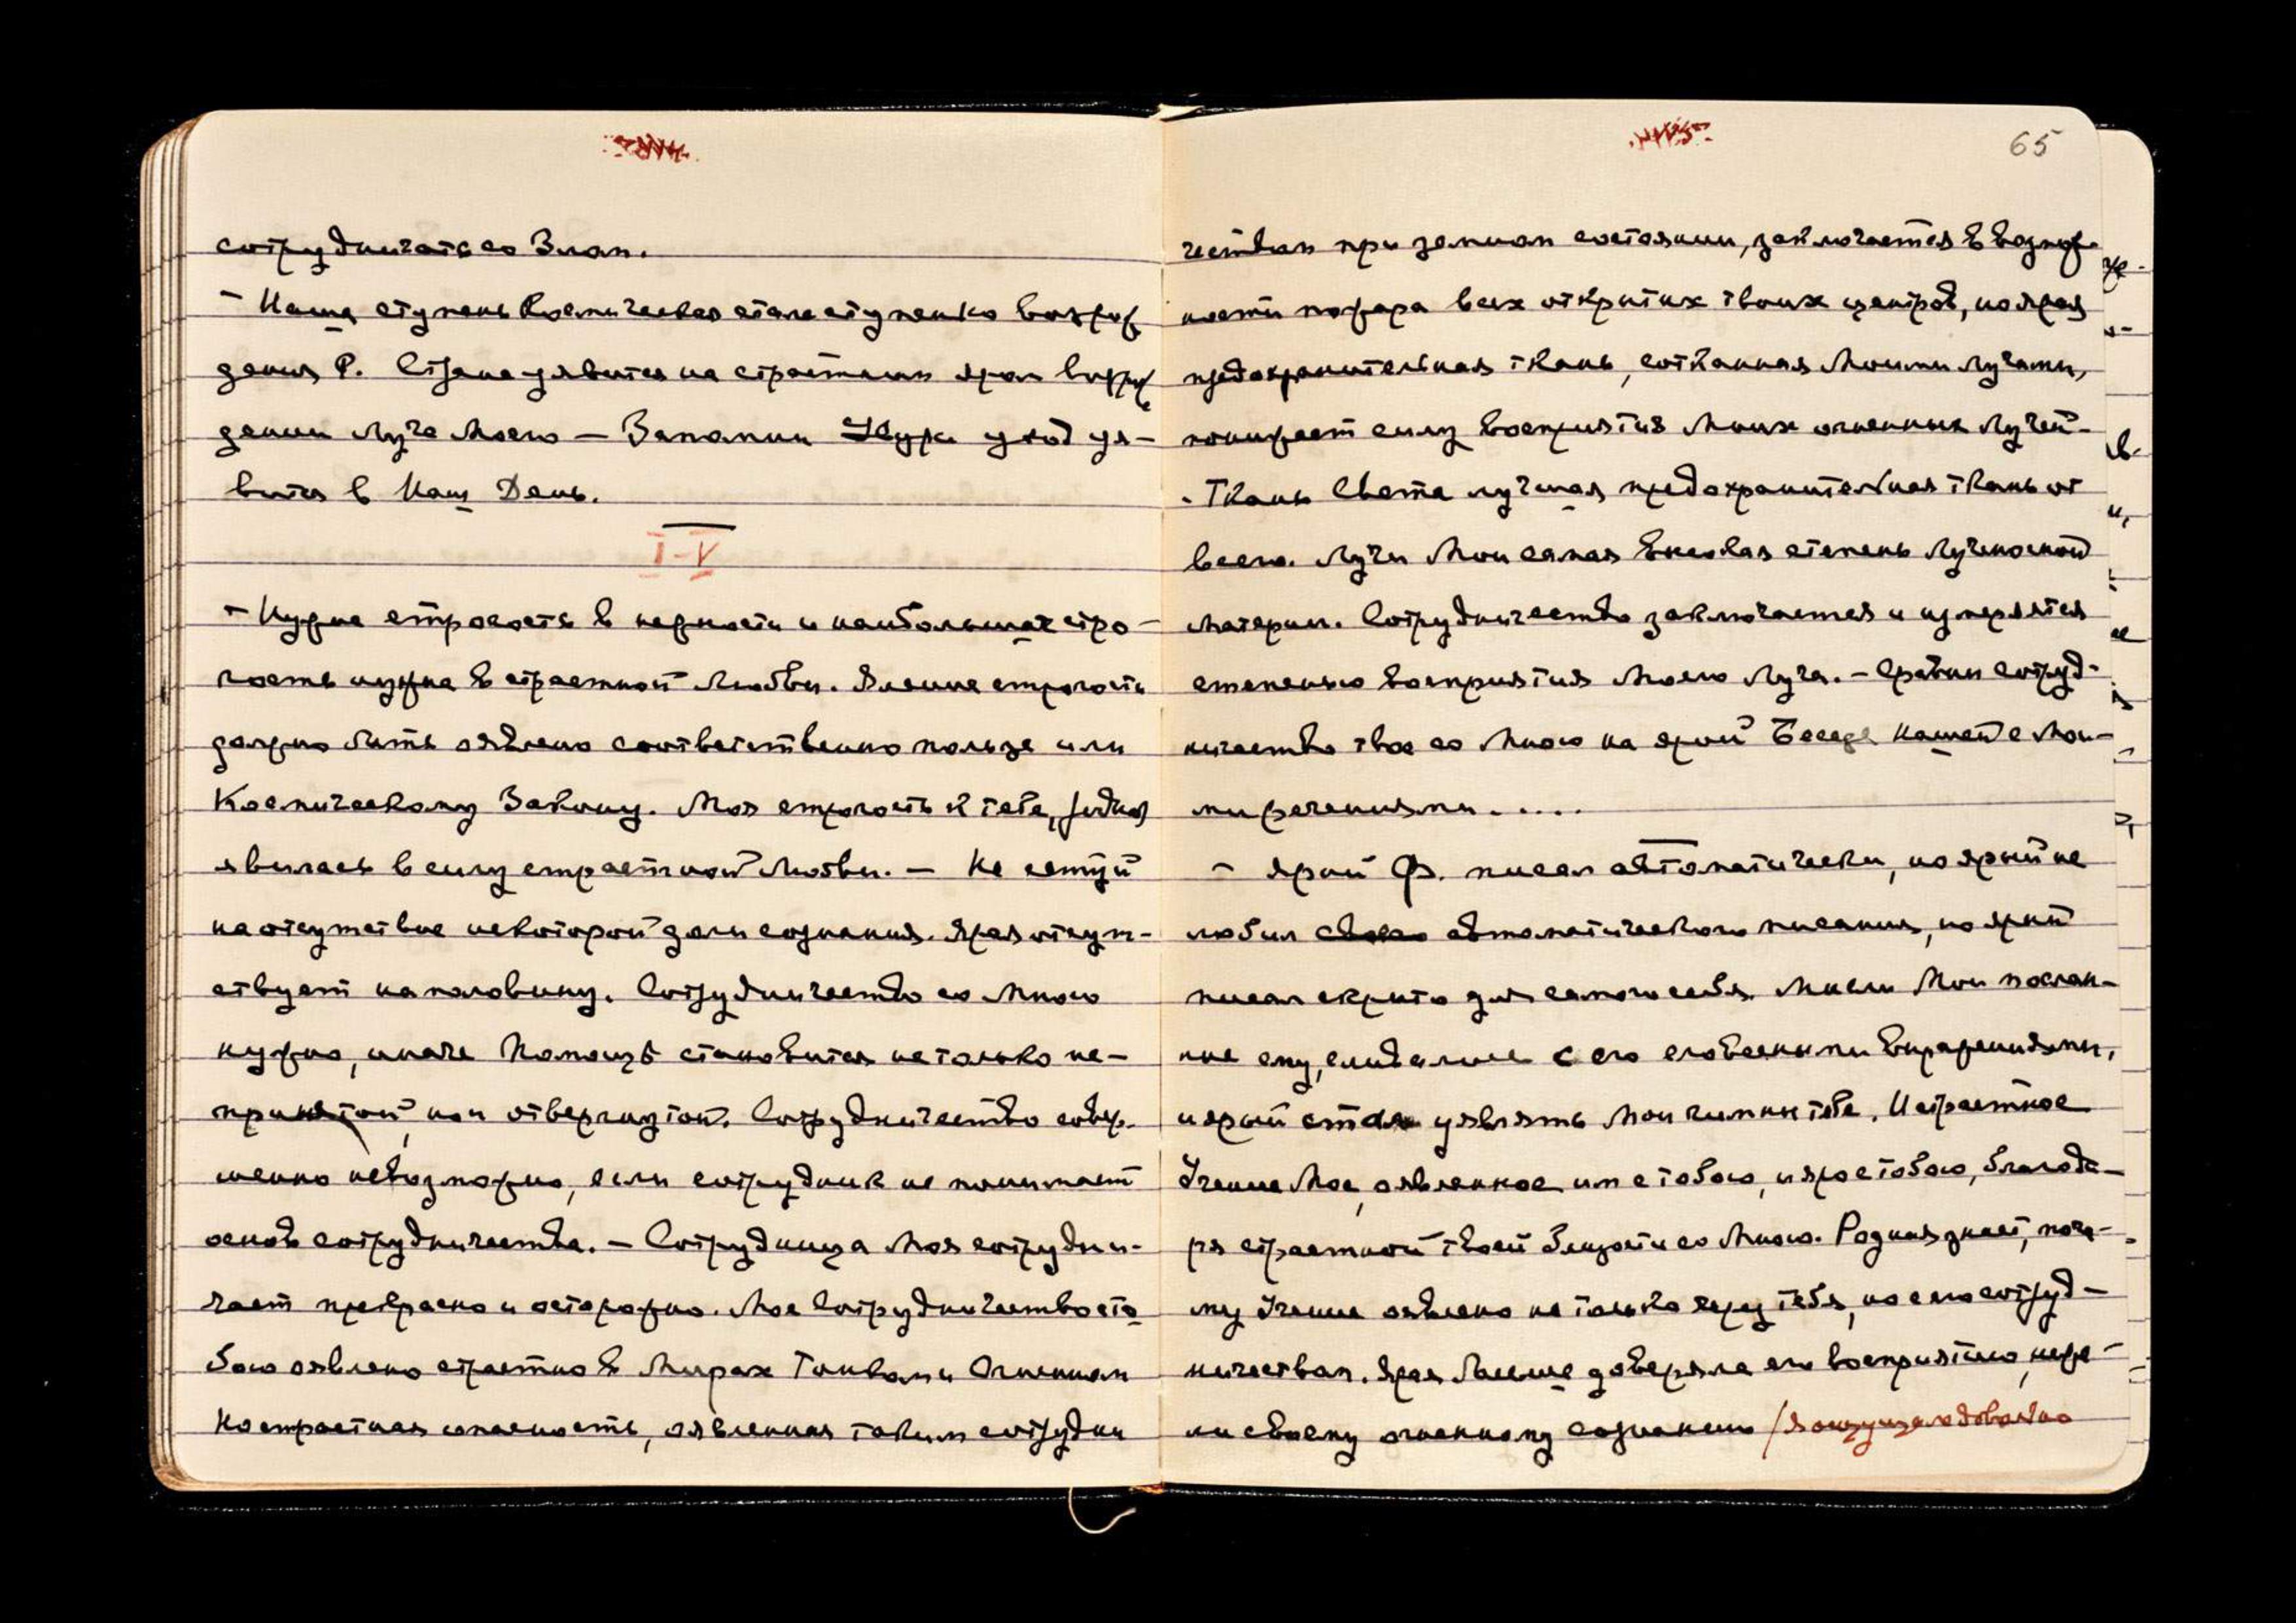 сотрудничать со Злом.
– Наша ступень Космическая стала ступенью возрож
дения Р. Страна уявится на страстном яром возрож
дении Луча Моего – Запомни Ужура уход уя–
вится в Наш День.
I–V
– Нужна строгость в нежности и наибольшая стро–
гость нужна в страстной Любви. Явление строгости
должно быть оявлено соответственно пользе или
Космическому Закону. Моя строгость к тебе, родная
явилась в силу страстной Любви. – Не сетуй
на отсутствие некоторой доли сознания. Ярая отсут–
ствует на половину. Сотрудничество со Мною
нужно, иначе Помощь становится не только не–
принятой, но и отвергнутой. Сотрудничество совер–
шенно невозможно, если сотрудник не понимает
основ сотрудничества. – Сотрудница Моя сотрудни–
чает прекрасно и осторожно. Мое Сотрудничество с то
бою оявлено страстно в Мирах Тонком и Огненном
Но страстная опасность, оявленная таким сотрудни
65
чеством при земном состоянии, заключается в возмож
ности пожара всех открытых твоих центров, но ярая
предохранительная ткань, сотканная Моими Лучами,
понижает силу восприятия Моих огненных Лучей–
– Ткань Света лучшая предохранительная ткань от
всего. Лучи Мои самая высокая степень Лученосной
Материи. Сотрудничество заключается и измеряется
степенью восприятия Моего Луча. – Сравни сотруд–
ничество твое со Мною на ярой Беседе нашей с Мои–
ми речениями.....
– Ярый Ф. писал автоматически, но ярый не
любил своего автоматического писания, но ярый
писал скрыто для самого себя. Мысли Мои послан–
ные ему, сливались с его словесными выражениями,
и ярый стал уявлять Мои гимны тебе. И страстное
Учение Мое, оявленное им с тобою, и яро с тобою, благода–
ря страстной твоей близости со Мною. Родная знает, поче–
му Учение оявлено не только через тебя, но с его сотруд–
ничеством. Ярая больше доверяла его восприятию, неже–
ли своему огненному сознанию /